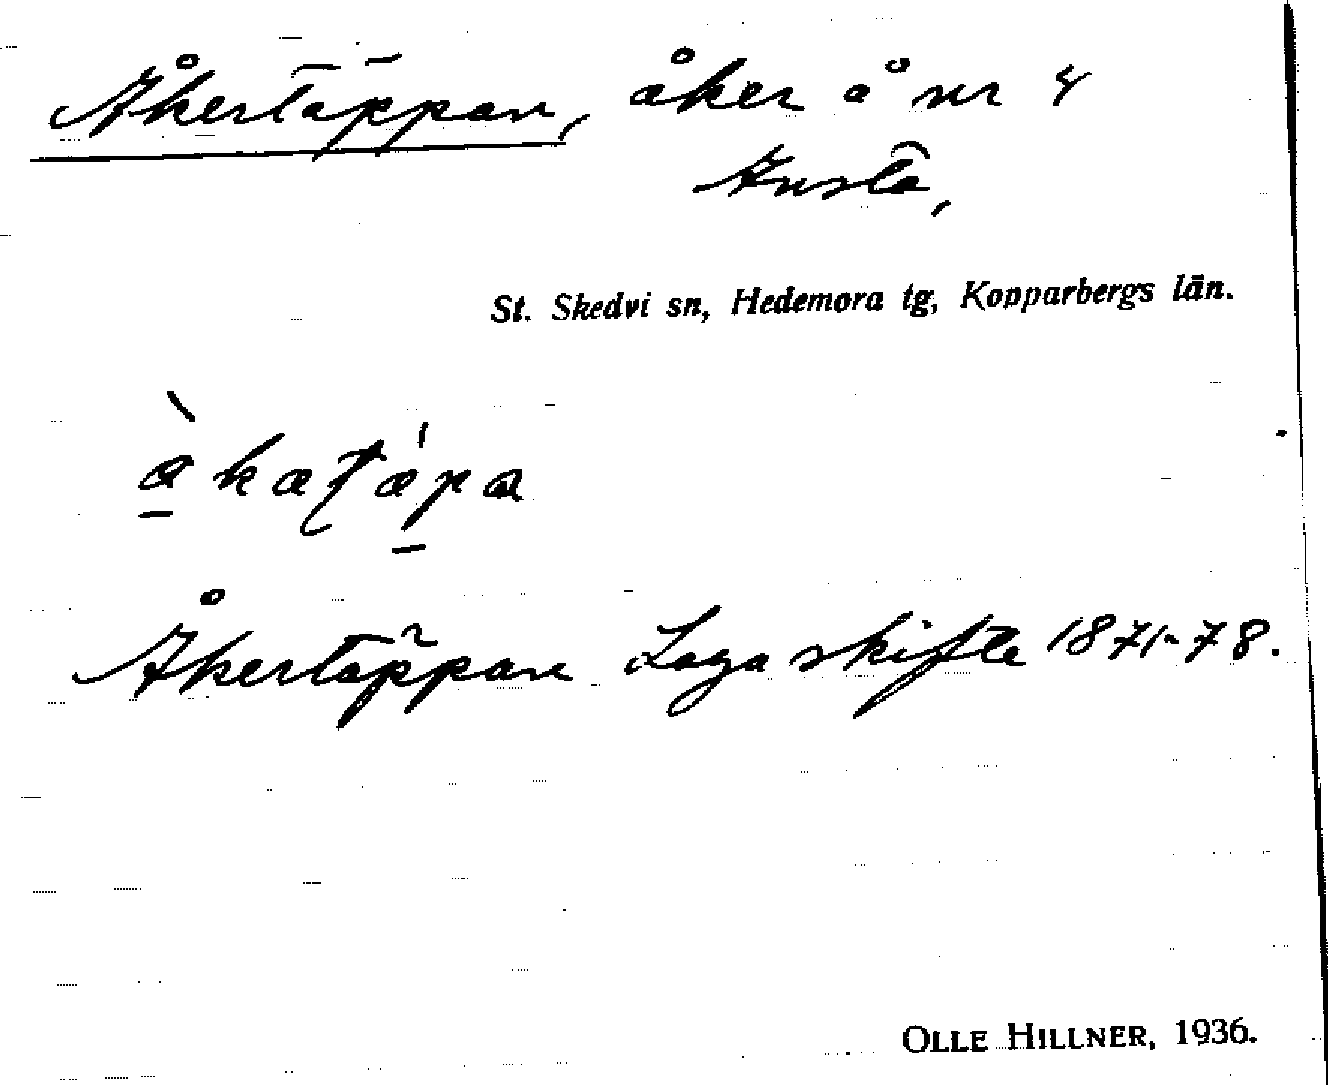 Åkertäppan, åker å nr 4
Knsta,
St. Skedvi sn, Hedemora tg, Kopparbergs län.
Åkertäppan Laga skifte 1871-78.
OLLE HILLNER, 1936.